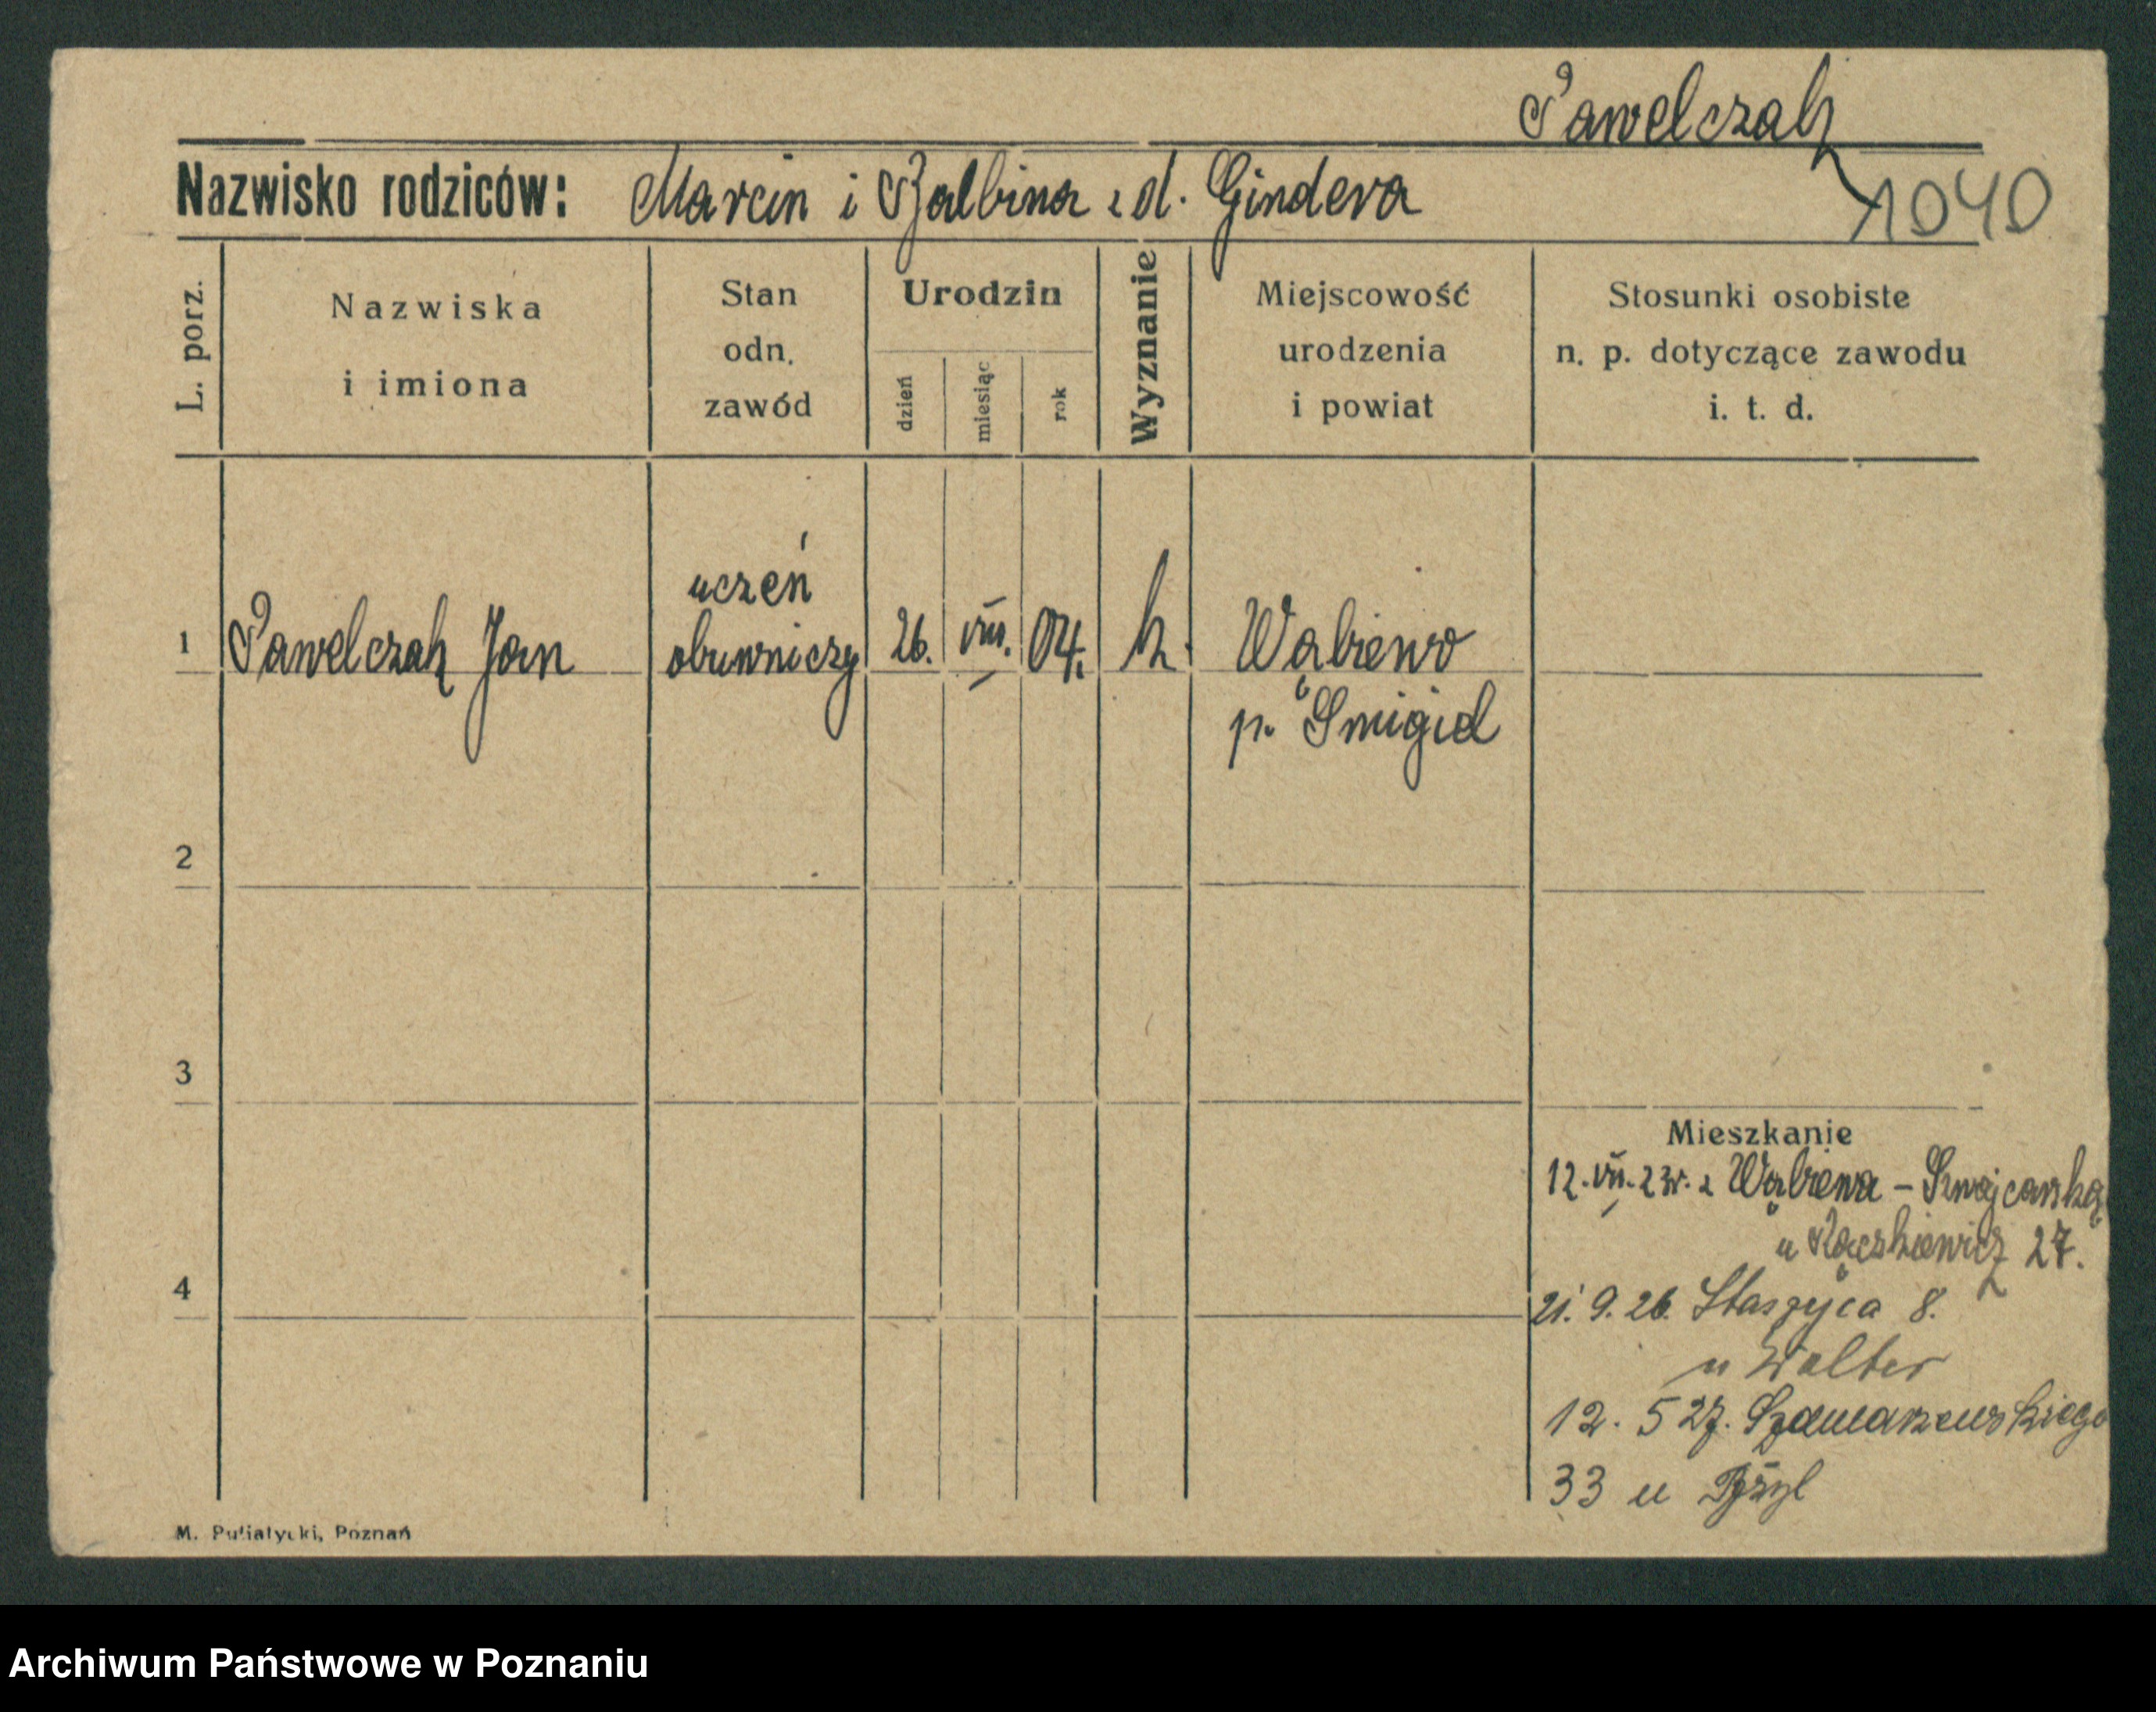 Pawelczak
Nazwisko rodziców: Marcin i Balbina z d. Gindera
1040
L. porz.
Nazwiska
i imiona
Stan
odn.
zawód
Urodzin
dzień
miesiąc
rok
Wyznanie
Miejscowość
urodzenia
i powiat
Stosunki osobiste
n. p. dotyczące zawodu
i. t. d.
uczeń
1 Pawelczak Jan obuwniczy 26. VIII. 04. k. Wąbiewo
p. Śmigiel
2
3
Mieszkanie
12. VII. 23r. z Wąbiewa – Szwajcarska
u 27.
4
21. 9. 26. Staszyca 8.
u Walter
12. 5 27. Szamarzewskiego
33 u
M. Putiatycki, Poznań
Archiwum Państwowe w Poznaniu